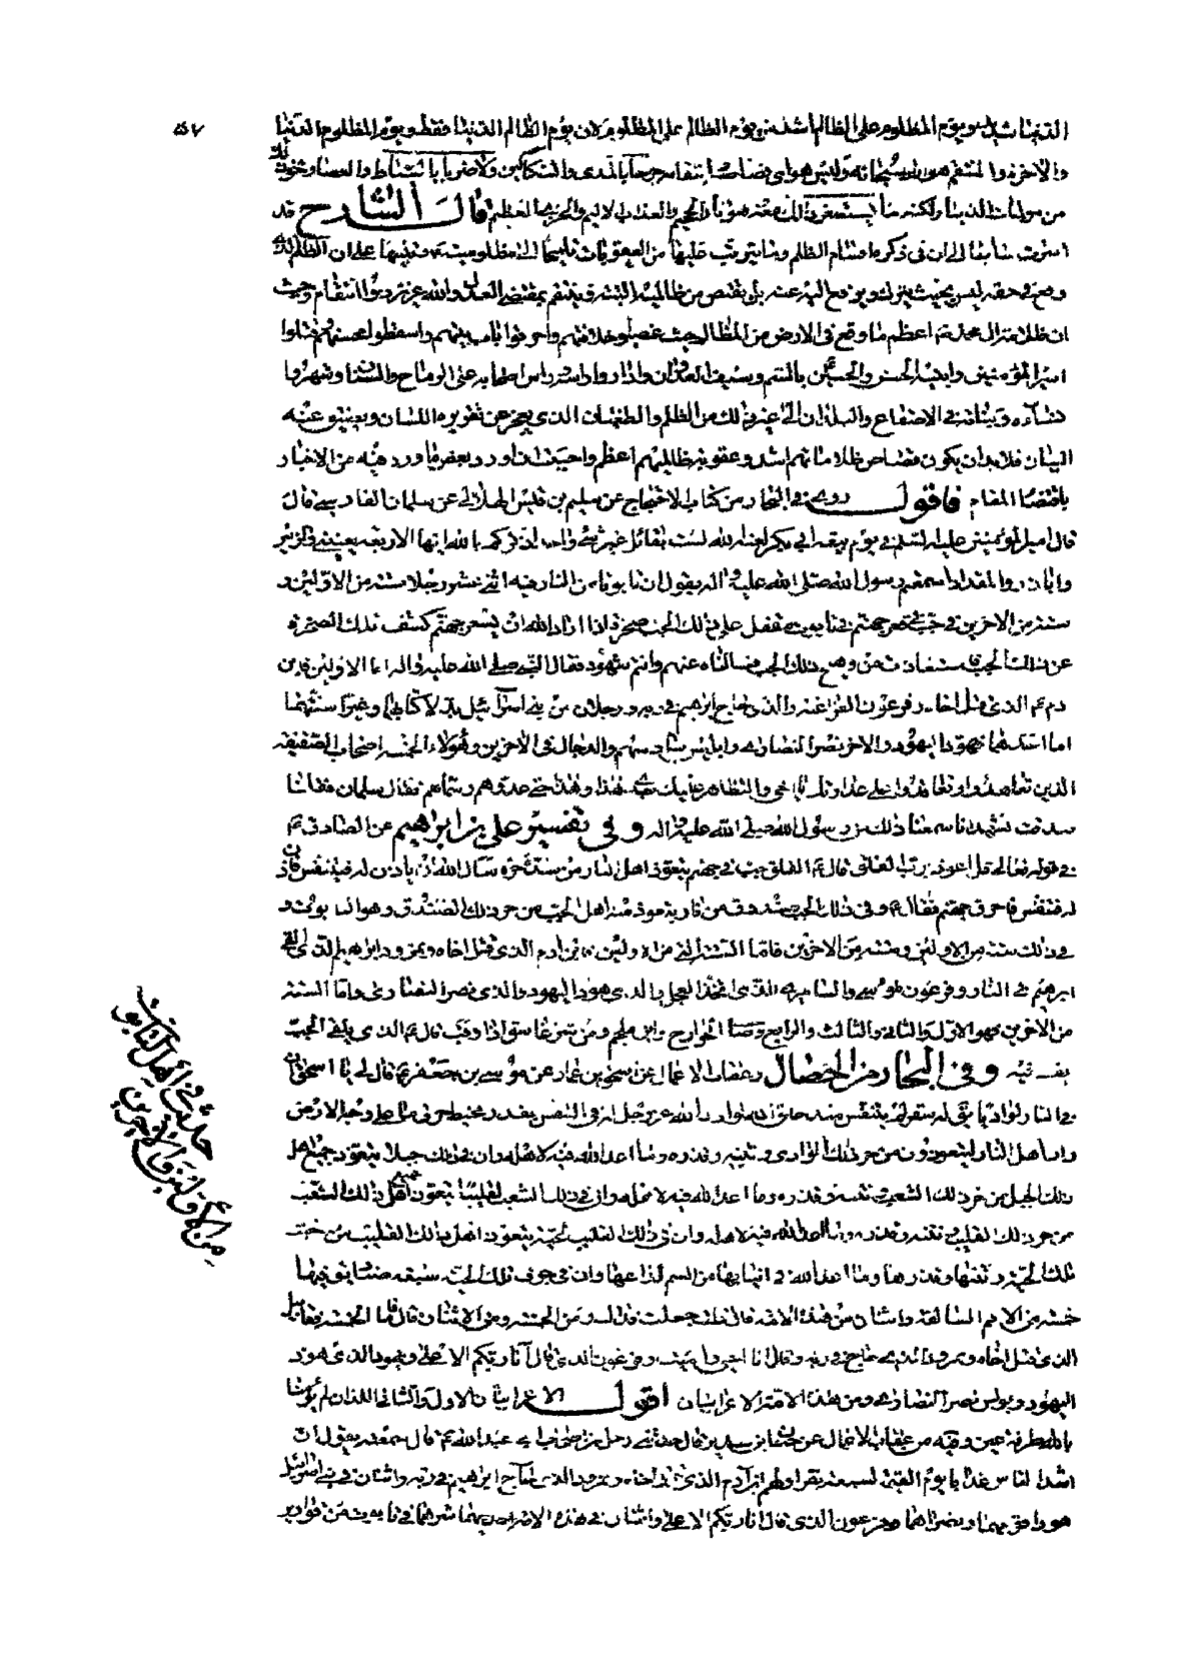 ٥٧
الدنيا شديد ويوم المظلوم على الظالم أشد من يوم الظالم على المظلوم لان يوم الظالم الدنيا فقط ويوم المظلوم الدنيا
والاخرة والمنتقم هو الله سبحانه وليس هو اى قصاصه وانتقامه جرحا بالمدى والسكاكين ولا ضربا بالسياط والعصا ونحو ذلك
من مولمات الدنيا ولكنه ما يستصغر ذلك معه من نار الجحيم والعذاب الاليم والخزى العظيم قال الشارح قد
اشرت سابقا الى ان فى ذكر مفاسد الظلم وما يترتب عليها من العقوبات تلميحا الى مظلوميته وتنبيها على ان الظلم الذى
وقع فى حقه ليس بحيث يترك ويرفع اليد عنه بل يقتص من ظالميه البتة وينتقم بمقتضى العدل والله عزيز ذو انتقام وحيث
ان ظلامة ال محمد اعظم ما وقع فى الارض من المظالم حيث غصبوا خلافتهم واحرقوا باب بيتهم واسقطوا محسنهم وقتلوا
امير المؤمنين وابنيه الحسن والحسين بالسم وسيف العدوان واداروا راس على الرماح والسنان وشهروا
نساءه وبناته فى الاصقاع والبلدان الى غير ذلك من الظلم والطغيان الذى يعجز عن تقريره اللسان ويضيق عنه
البيان فلابد ان يكون قصاص ظلاماتهم اشد وعقوبة ظالميهم اعظم واحببت ان اورد بعض ما ورد فيه من الاخبار
باقتضاء المقام فاقول روى فى البحار من كتاب الاحتجاج عن سليم بن قيس الهلالى عن سلمان الفارسى قال
قال امير المؤمنين عليه السلم فى يوم بيعة ابى بكر لعنه الله لست بقائل غير شئ واحد اذكركم بالله ايها الاربعة يعنينى والزبير
وابا ذر والمقداد اسمعتم رسول الله صلى الله عليه واله يقول ان تابوتا من النار فيه اثنى عشر رجلا ستة من الاولين و
ستة من الاخرين فى جب فى قعر جهنم فى تابوت مقفل على ذلك الجب صخرة اذا اراد الله ان يسعر جهنم كشف تلك الصخرة
عن ذلك الجب فاستعاذت من وهج ذلك الجب فسالناه عنهم وانتم شهود فقال النبى صلى الله عليه واله اما الاولين فابن
ادم الذى قتل اخاه وفرعون الفراعنة والذى حاج ابراهيم فى ربه ورجلان من بنى اسرائيل بدلا كتابهما وغيرا سنتهما
اما احدهما فهود اليهود والاخر نصر النصارى وابليس سادسهم والدجال فى الاخرين وهؤلاء الخمسة اصحاب الصحيفة
الذين تعاهدوا وتعاقدوا على عداوتك يا اخى والتظاهر عليك بعدى هذا وهذا حتى عدهم وسماهم فقال سلمان فقلنا
صدقت نشهد انا سمعنا ذلك من رسول الله صلى الله عليه واله وفى تفسير على بن ابراهيم عن الصادق
فى قوله تعالى قل اعوذ برب الفلق قال الفلق جب فى جهنم يتعوذ اهل النار من شدة حره سال الله ان ياذن له فيتنفس فاذن
له فتنفس فاحرق جهنم فقال وفى ذلك الجب صندوق من نار يتعوذ منه اهل الجب من حر ذلك الصندوق وهو التابوت و
فى ذلك ستة من الاولين وستة من الاخرين فاما الستة التى من الاولين فابن ادم الذى قتل اخاه ونمرود ابراهيم الذى القى
ابرهيم فى النار وفرعون موسى والسامرى الذى اتخذ العجل والذى هود اليهود والذى نصر النصارى واما الستة
من الاخرين فهو الاول والثانى والثالث والرابع وصاحب الخوارج وابن ملجم ومن شر غاسق اذا وقب قال الذى يلقى الجب
يقب فيه وفى البحار من الخصال وعقاب الاعمال عن اسحق بن عمار عن موسى بن جعفر قال لى يا اسحق ان
فى النار لواديا يقال له سقر لم يتنفس منذ خلقه الله لو اذن الله عز وجل له فى التنفس بقدر مخيط احرق ما على وجه الارض
وان اهل النار ليتعوذون من حر ذلك الوادى ونتنه وقذره وما اعد الله فيه لاهله وان فى ذلك جبلا يتعوذ جميع اهل
ذلك الجبل من حر ذلك الشعب ونتنه وقذره وما اعد الله فيه لاهله وان فى ذلك الشعب لقليبا يتعوذ جميع اهل ذلك الشعب
من حر ذلك القليب ونتنه وقذره وما اعد الله فيه لاهله وان فى ذلك القليب لحية يتعوذ اهل ذلك القليب من خبث
تلك الحية ونتنها وقذرها وما اعد الله فى انيابها من السم لاهلها وان فى جوف تلك الحية سبعة صناديق فيها
خمسة من الامم السالفة واثنان من هذه الامة قال قلت جعلت فداك ومن الخمسة ومن الاثنان قال اما الخمسة فقابيل
الذى قتل اخاه ونمرود الذى حاج فى ربه وقال انا احيى واميت وفرعون الذى قال انا ربكم الاعلى ويهود الذى هود
اليهود وبولس نصر النصارى ومن هذه الامة الاعرابيان اقول الاعرابيان الاول والثانى اللذان لم يؤمنا
بالله طرفة عين وفيه من عقاب الاعمال عن حنان بن سدير قال حدثنى رجل من اصحاب ابى عبد الله قال سمعته يقول ان
اشد الناس عذابا يوم القيمة لسبعة نفر اولهم ابن آدم الذى قتل اخاه ونمرود الذى حاج ابراهيم فى ربه واثنان فى بنى اسرائيل
هودا قومهما ونصراهما وفرعون الذى قال انا ربكم الاعلى واثنان فى هذه الامة احدهما شرهما فى تابوت من قوارير
حديث فى اهل التابوت
من الاولين والاخرين